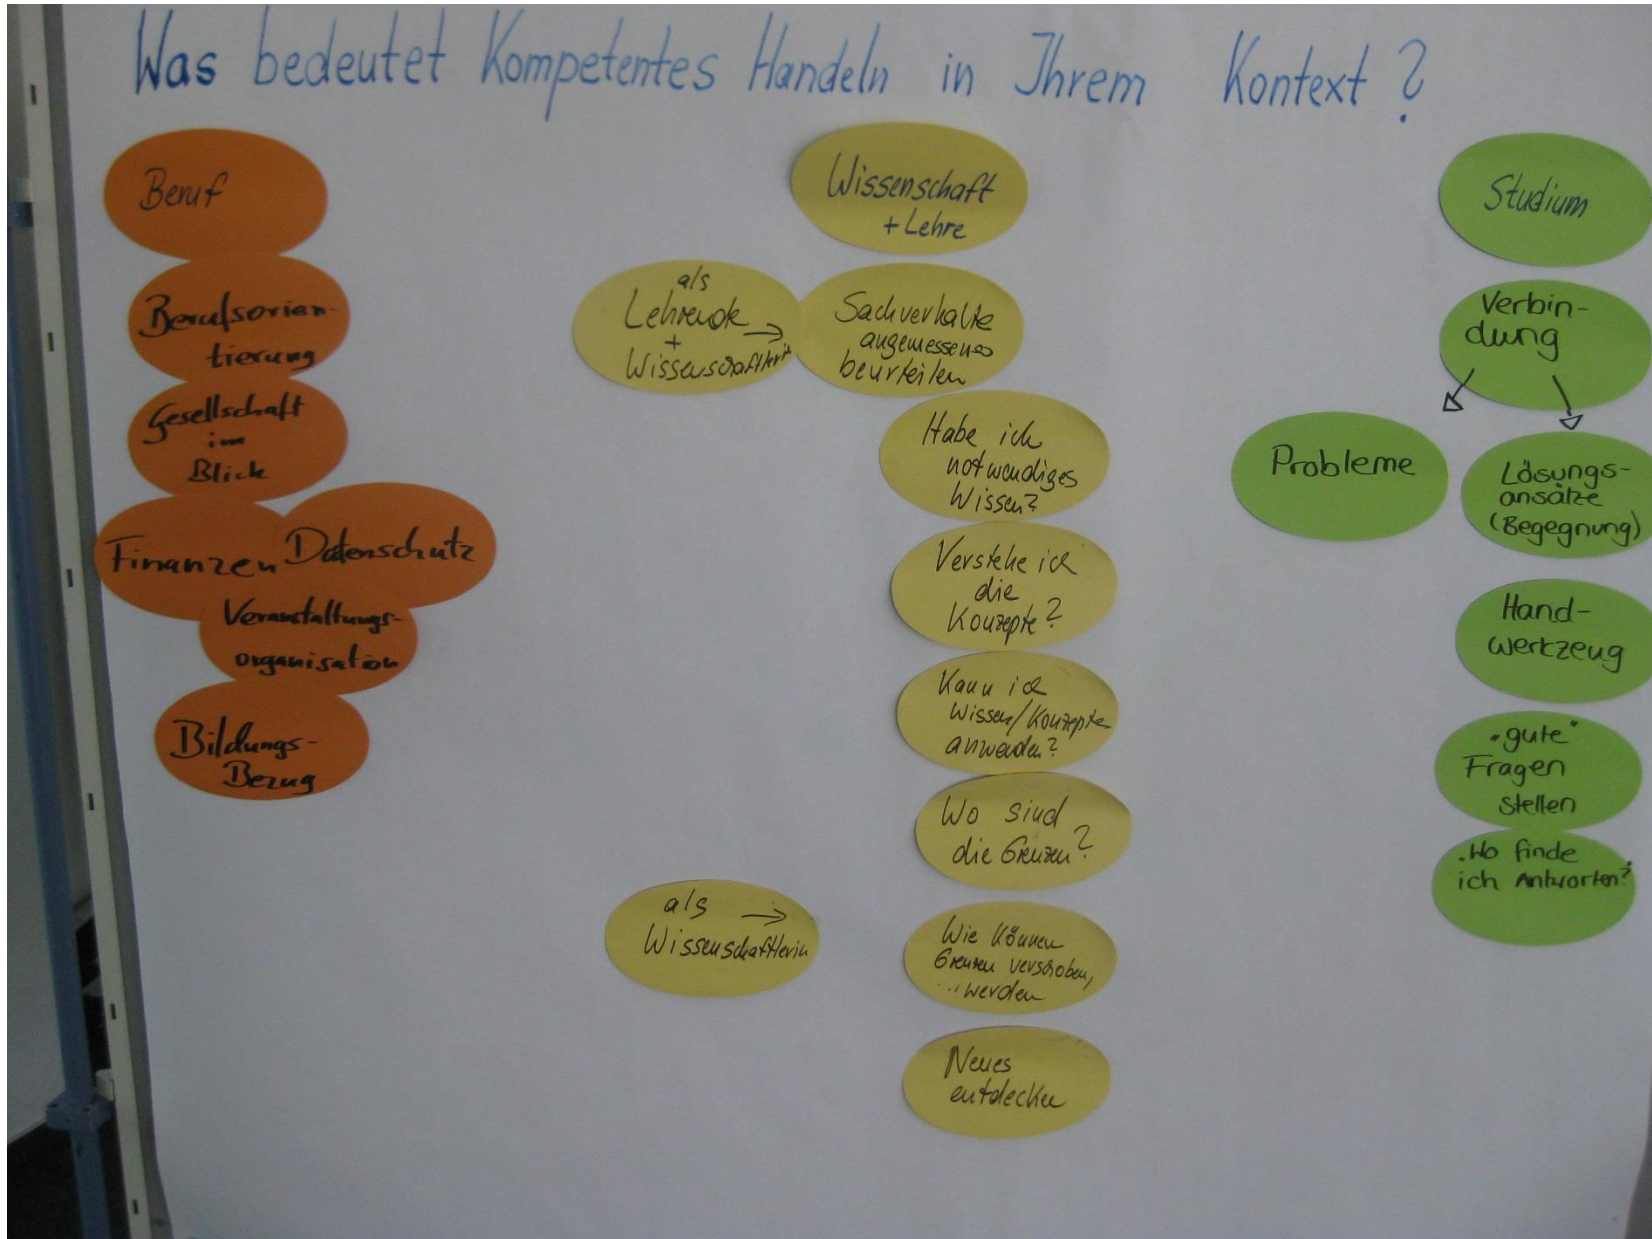 Was bedeutet Kompetentes Handeln in Ihrem Kontext?
Beruf
Berufsorien-
tierung
Gesellschaft
im
Blick
Finanzen
Datenschutz
Veranstaltungs-
organisation
Bildungs-
Bezug
Wissenschaft
+ Lehre
als
Lehrende →
+
Wissenschaftlerin
Sachverhalte
angemessenes
beurteilen
Habe ich
notwendiges
Wissen?
Verstehe ich
die
Konzepte?
Kann ich
Wissen/Konzepte
anwenden?
Wo sind
die Grenzen?
als →
Wissenschaftlerin
Wie können
Grenzen verschoben,
... werden
Neues
entdecken
Studium
Verbin-
dung
Probleme
Lösungs-
ansätze
(Begegnung)
Hand-
werkzeug
"gute"
Fragen
stellen
.Wo finde
ich Antworten?